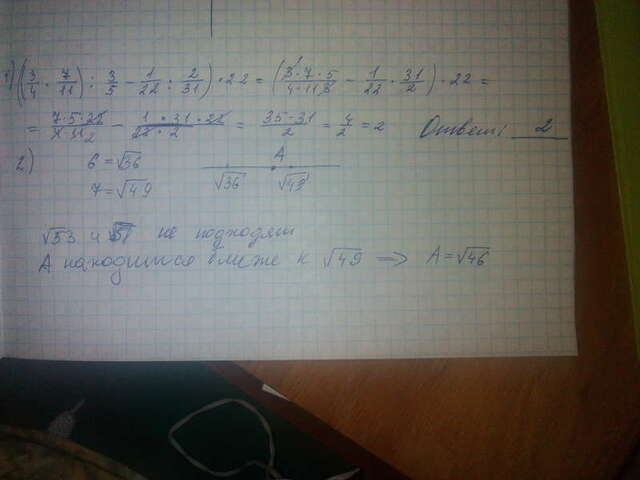 1) ((3/4 · 7/11) : 3/5 − 1/22 : 2/31) · 22 = (3·7·5/4·11·3 − 1/22 · 31/2) · 22 =
= 7·5·22/4·11 2 − 1·31·22/22·2 = 35−31/2 = 4/2 = 2 Ответ: 2
2) 6 = √36 A
7 = √49 √36 √49
√53 и не подходят
A находится ближе к √49 => A = √46